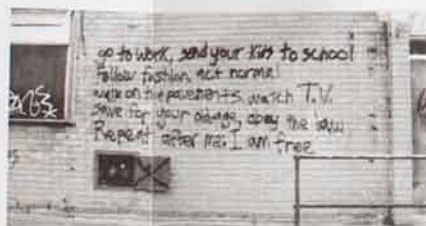 go to work, send your kids to school
follow fashion, act normal
walk on the pavements, watch T.V.
save for your old age, obey the law
Repeat after me: I am free